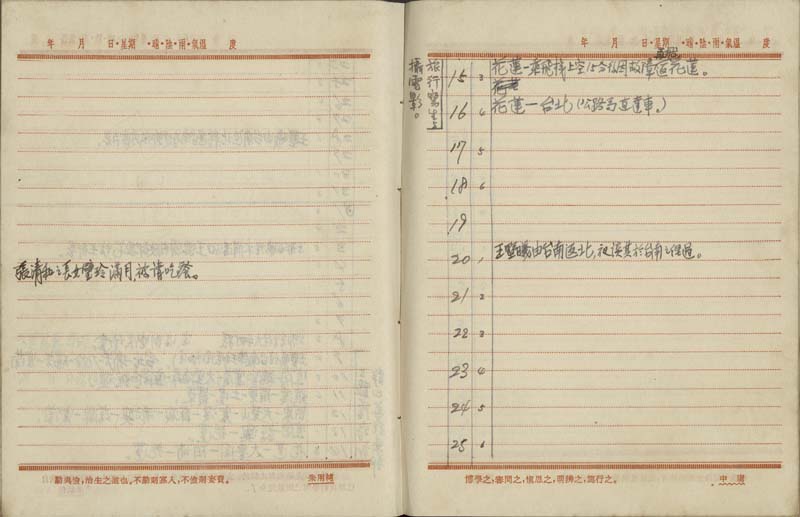 年 月 日·星期 ·晴·陰·雨·氣溫 度
張清和之長女瑩玲滿月被請吃餐。
勤與儉，治生之道也。不勤則寡入，不儉則妄費。 朱用純
年 月 日·星期 ·晴·陰·雨·氣溫 度
旅行寫生上
攝電影。
再起
15 3 花蓮—乘飛機上空15分鐘因故障返花蓮。
16 4 花蓮—台北(公路局直達車。)
17 5
18 6
19
20 1 由台南返北,
21 2
22 3
23 4
24 5
25 6
博學之，審問之，愼思之，明辨之，篤行之。 中庸